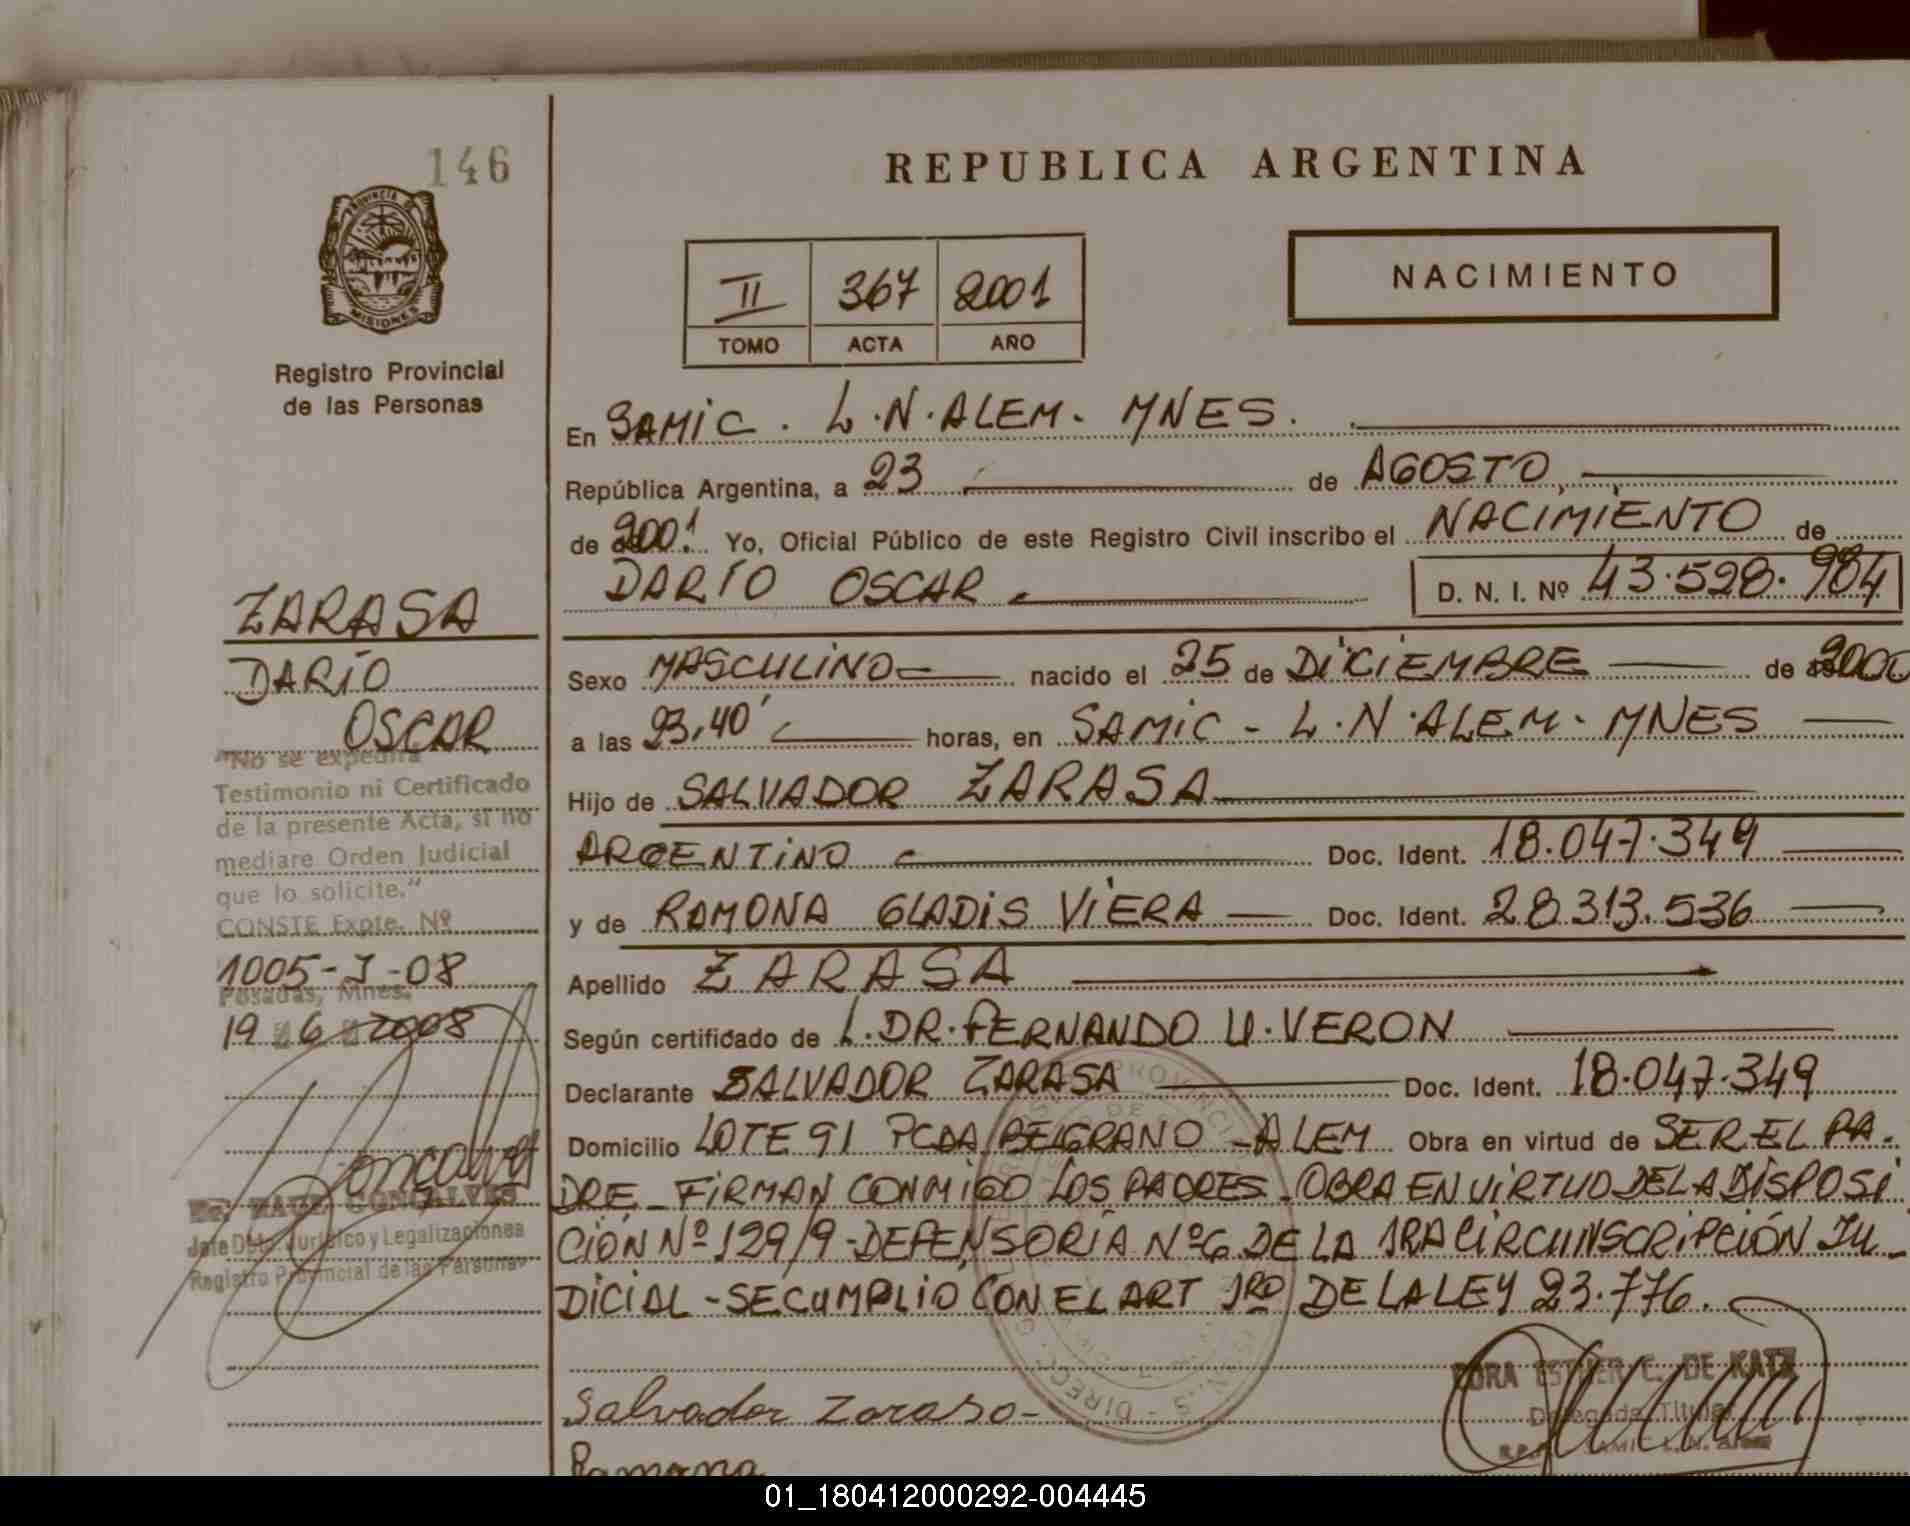 146
PROVINCIA DE
MISIONES
Registro Provincial
de las Personas
ZARASA
DARÍO
OSCAR
"No se expedirá
Testimonio ni Certificado
de la presente Acta, si no
mediare Orden Judicial
que lo solicite."
CONSTE Expte. Nº
1005-J-08
Posadas, Mnes.
19 6 2008
GONCALVES
Jefe Dpto. Jurídico y Legalizaciones
Registro Provincial de las Personas
REPUBLICA ARGENTINA
II 367 2001
TOMO ACTA AÑO
NACIMIENTO
En SAMIC. L.N.ALEM. MNES.
República Argentina, a 23 de AGOSTO,
de 2001. Yo, Oficial Público de este Registro Civil inscribo el NACIMIENTO de
DARÍO OSCAR D. N. I. Nº 43.528.984
Sexo MASCULINO nacido el 25 de DICIEMBRE de 2000
a las 23,40' horas, en SAMIC - L.N.ALEM. MNES
Hijo de SALVADOR ZARASA
ARGENTINO Doc. Ident. 18.047.349
y de RAMONA GLADIS VIERA Doc. Ident. 28.313.536
Apellido ZARASA
Según certificado de L. DR. FERNANDO U. VERON
Declarante SALVADOR ZARASA Doc. Ident. 18.047.349
Domicilio LOTE 91 PCDA BELGRANO - ALEM Obra en virtud de SER EL PA-
DRE - FIRMAN CONMIGO LOS PADRES. OBRA EN VIRTUD DE LA DISPOSI
CIÓN Nº 129/9 - DEFENSORÍA Nº 6 DE LA 1RA CIRCUNSCRIPCIÓN JU-
DICIAL - SE CUMPLIO CON EL ART 1RO DE LA LEY 23.776.
DORA ESTHER C. DE KATZ
Delegada Titular
Salvador Zarasa-
Ramona
01_180412000292-004445